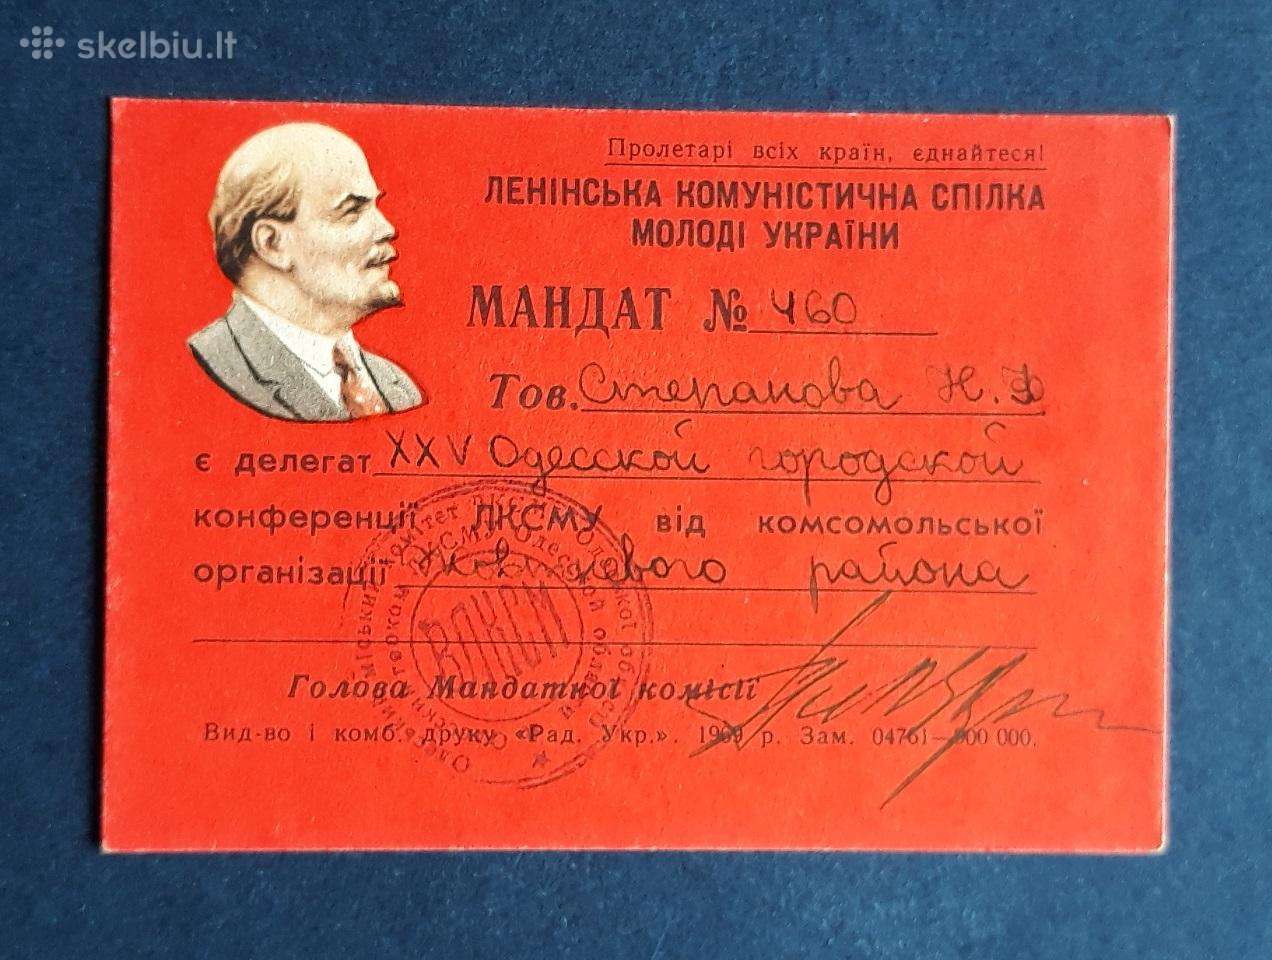 skelbiu.lt
Пролетарі всіх країн, єднайтеся!
ЛЕНІНСЬКА КОМУНІСТИЧНА СПІЛКА
МОЛОДІ УКРАЇНИ
МАНДАТ № 460
Тов. Степанова Н.Ф
є делегат XXV Одесской городской
конференції ЛКСМУ від комсомольської
організації Жовтневого района
ВЛКСМ
Голова Мандатної комісії
Вид-во і комб. друку «Рад. Укр.». 1969 р. Зам. 04761—900 000.